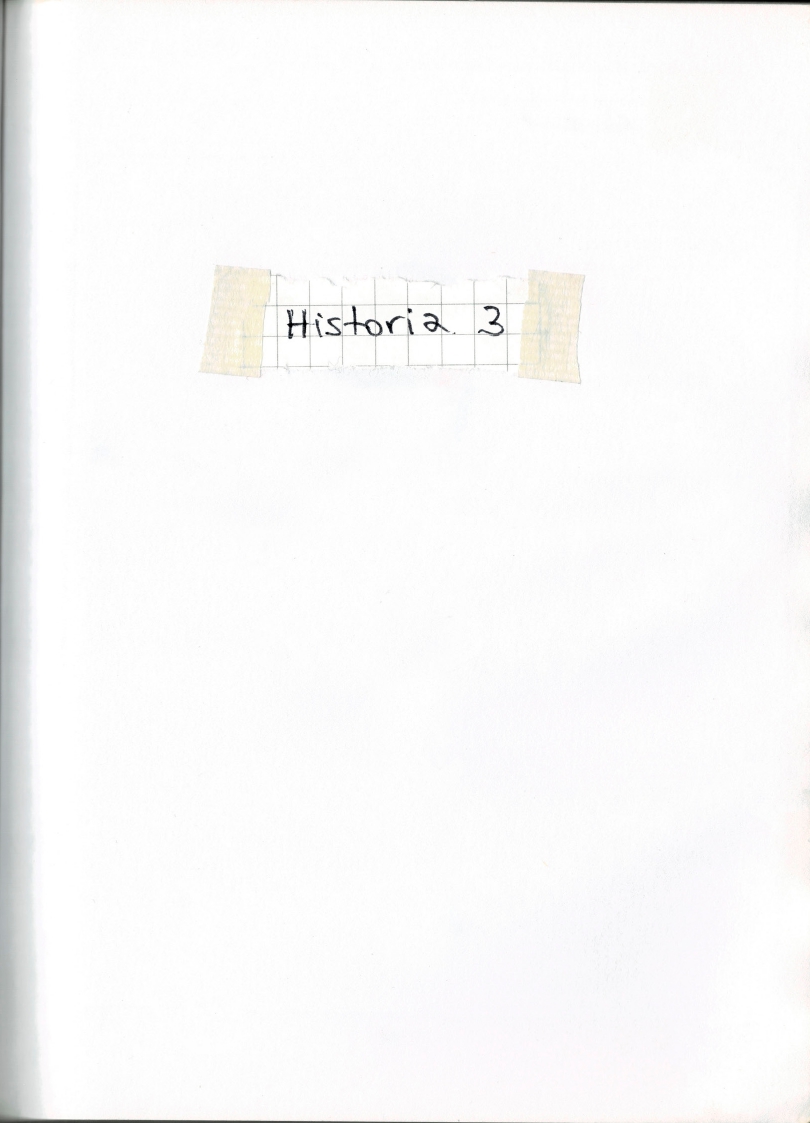 Historia 3